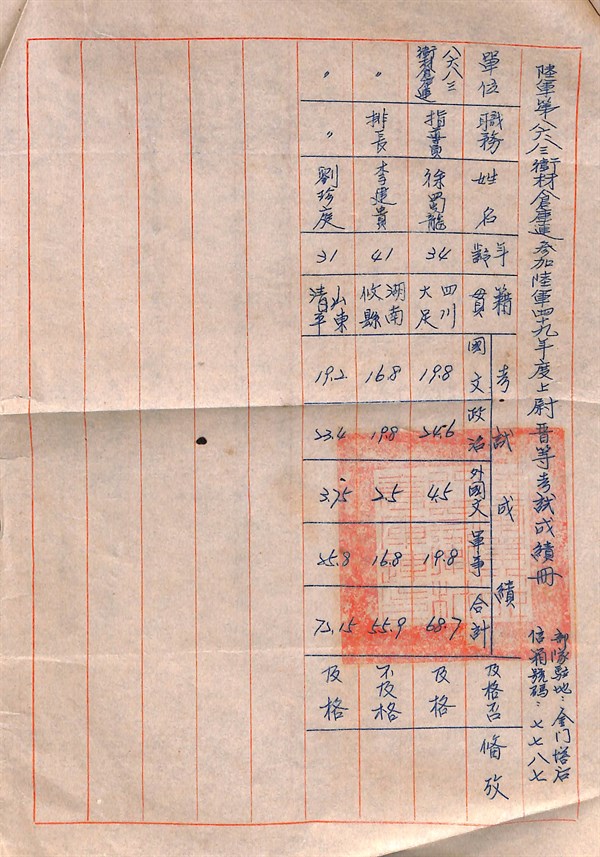 陸軍第八六八三衛材倉庫連參加陸軍四十九年度上尉晉等考試成績冊
部隊駐地：金门塔后
信箱號碼：七七八七
單位 職務 姓名 年齡 籍貫 考試成績 國文 政治 外國文 軍事 合計 及格否 備攷
八六八三衛材倉庫連 指畫員 徐蜀龍 34 四川大足 19.8 24.6 4.5 19.8 68.7 及格
〃 排長 李建貴 41 湖南攸縣 16.8 19.8 2.5 16.8 55.9 不及格
〃 〃 劉珍庭 31 山東清平 19.2 23.4 3.75 25.8 73.15 及格